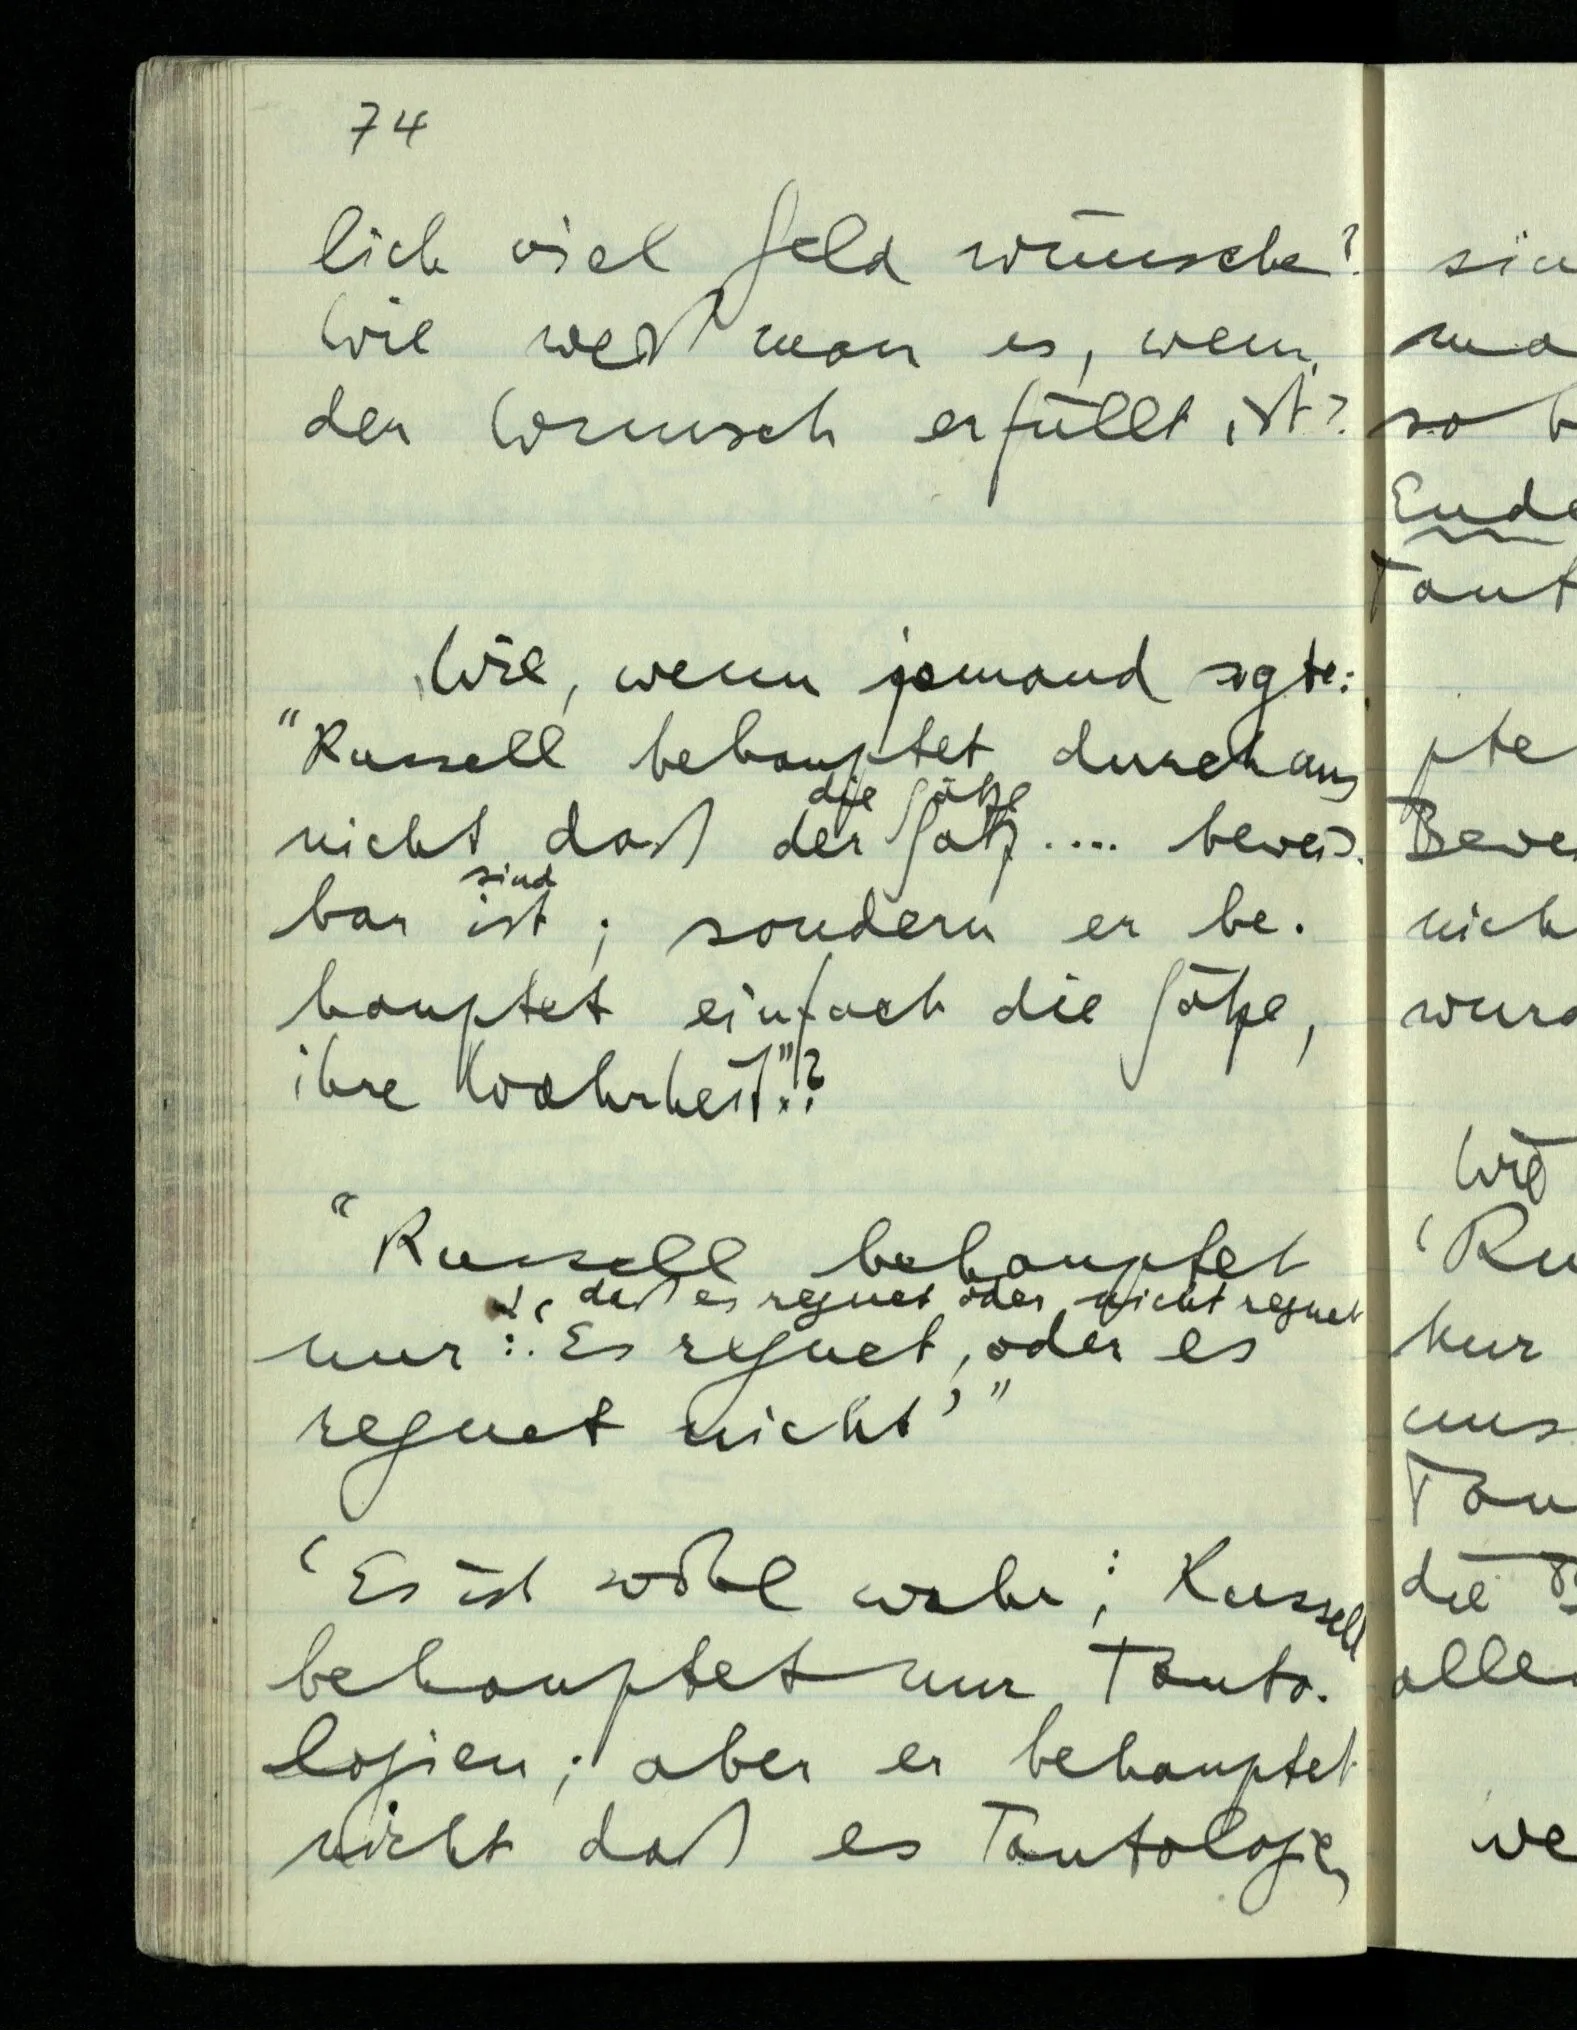 74
lich viel Geld wünsche?
Wie weiß man es, wenn
der Wunsch erfüllt ist?
Wie, wenn jemand sagte:
"Russell behauptet durchaus
die Sätze
nicht daß der Satz .... beweis-
sind
bar ist; sondern er be-
hauptet einfach die Sätze,
ihre Wahrheit."?
"Russell behauptet
, daß es regnet oder nicht regnet
nur: 'Es regnet, oder es
regnet nicht'"
'Es ist wohl wahr; Russell
behauptet nur Tauto-
logien; aber er behauptet
nicht daß es Tautologien
sin
ma
so b
Ende
Taut
pte
Bewei
nich
wurd
Wie
'Ru
nur
uns
Tau
die
alle
we